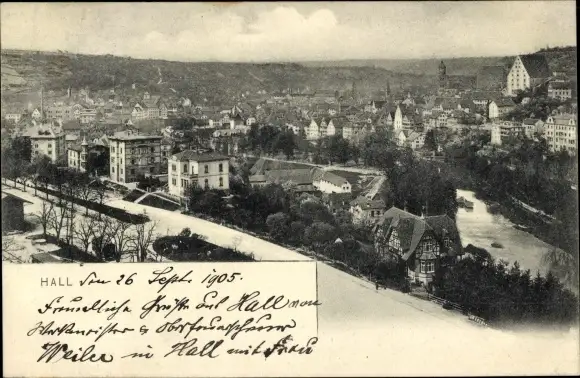 HALL den 26 Sept. 1905.
Freundliche Grüße aus Hall von
Werkmeister & Oberfeuerschauer
Weiler in Hall mit Frau